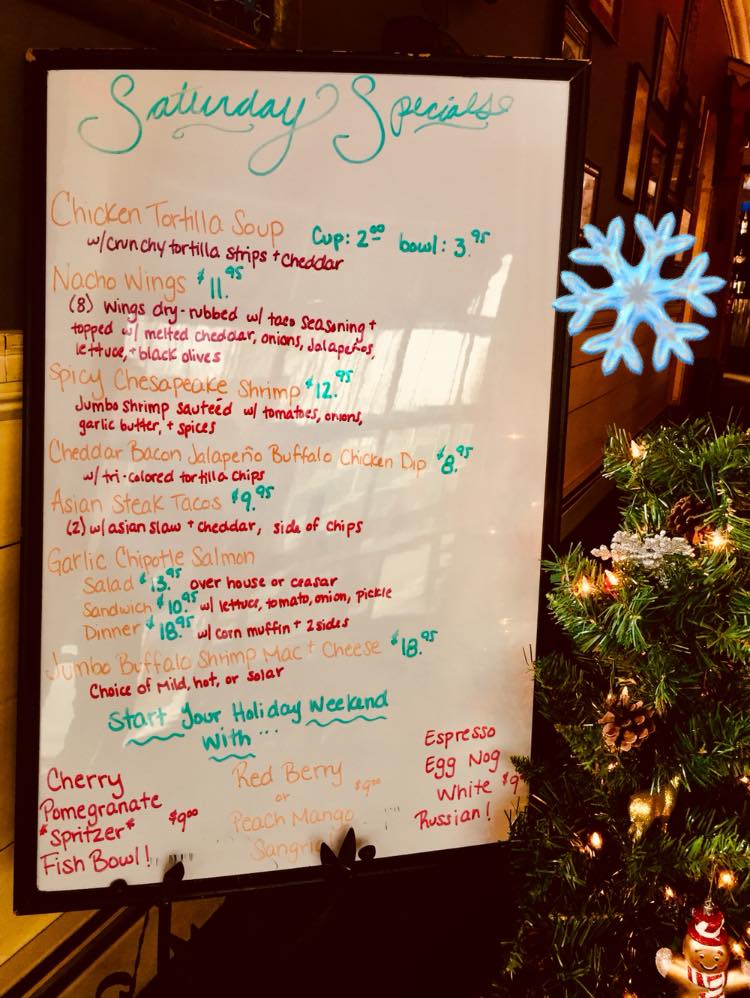 Saturday Specials
Chicken Tortilla Soup Cup: 2.00 bowl: 3.95
w/crunchy tortilla strips + cheddar
Nacho Wings $11.95
(8) Wings dry-rubbed w/ taco seasoning +
topped w/ melted cheddar, onions, Jalapeños,
lettuce, + black olives
Spicy Chesapeake Shrimp $12.95
Jumbo Shrimp sauteéd w/ tomatoes, onions,
garlic butter, + spices
Cheddar Bacon Jalapeño Buffalo Chicken Dip $8.95
w/ tri-colored tortilla chips
Asian Steak Tacos $9.95
(2) w/ asian slaw + cheddar, side of chips
Garlic Chipotle Salmon
Salad $13.95 over house or ceasar
Sandwich $10.95 w/ lettuce, tomato, onion, pickle
Dinner $18.95 w/ corn muffin + 2 sides
Jumbo Buffalo Shrimp Mac + Cheese $18.95
Choice of Mild, hot, or solar
Start Your Holiday Weekend
With...
Cherry
Pomegranate
*Spritzer* $9.00
Fish Bowl!
Red Berry
or $9.00
Peach Mango
Espresso
Egg Nog
White $9
Russian!